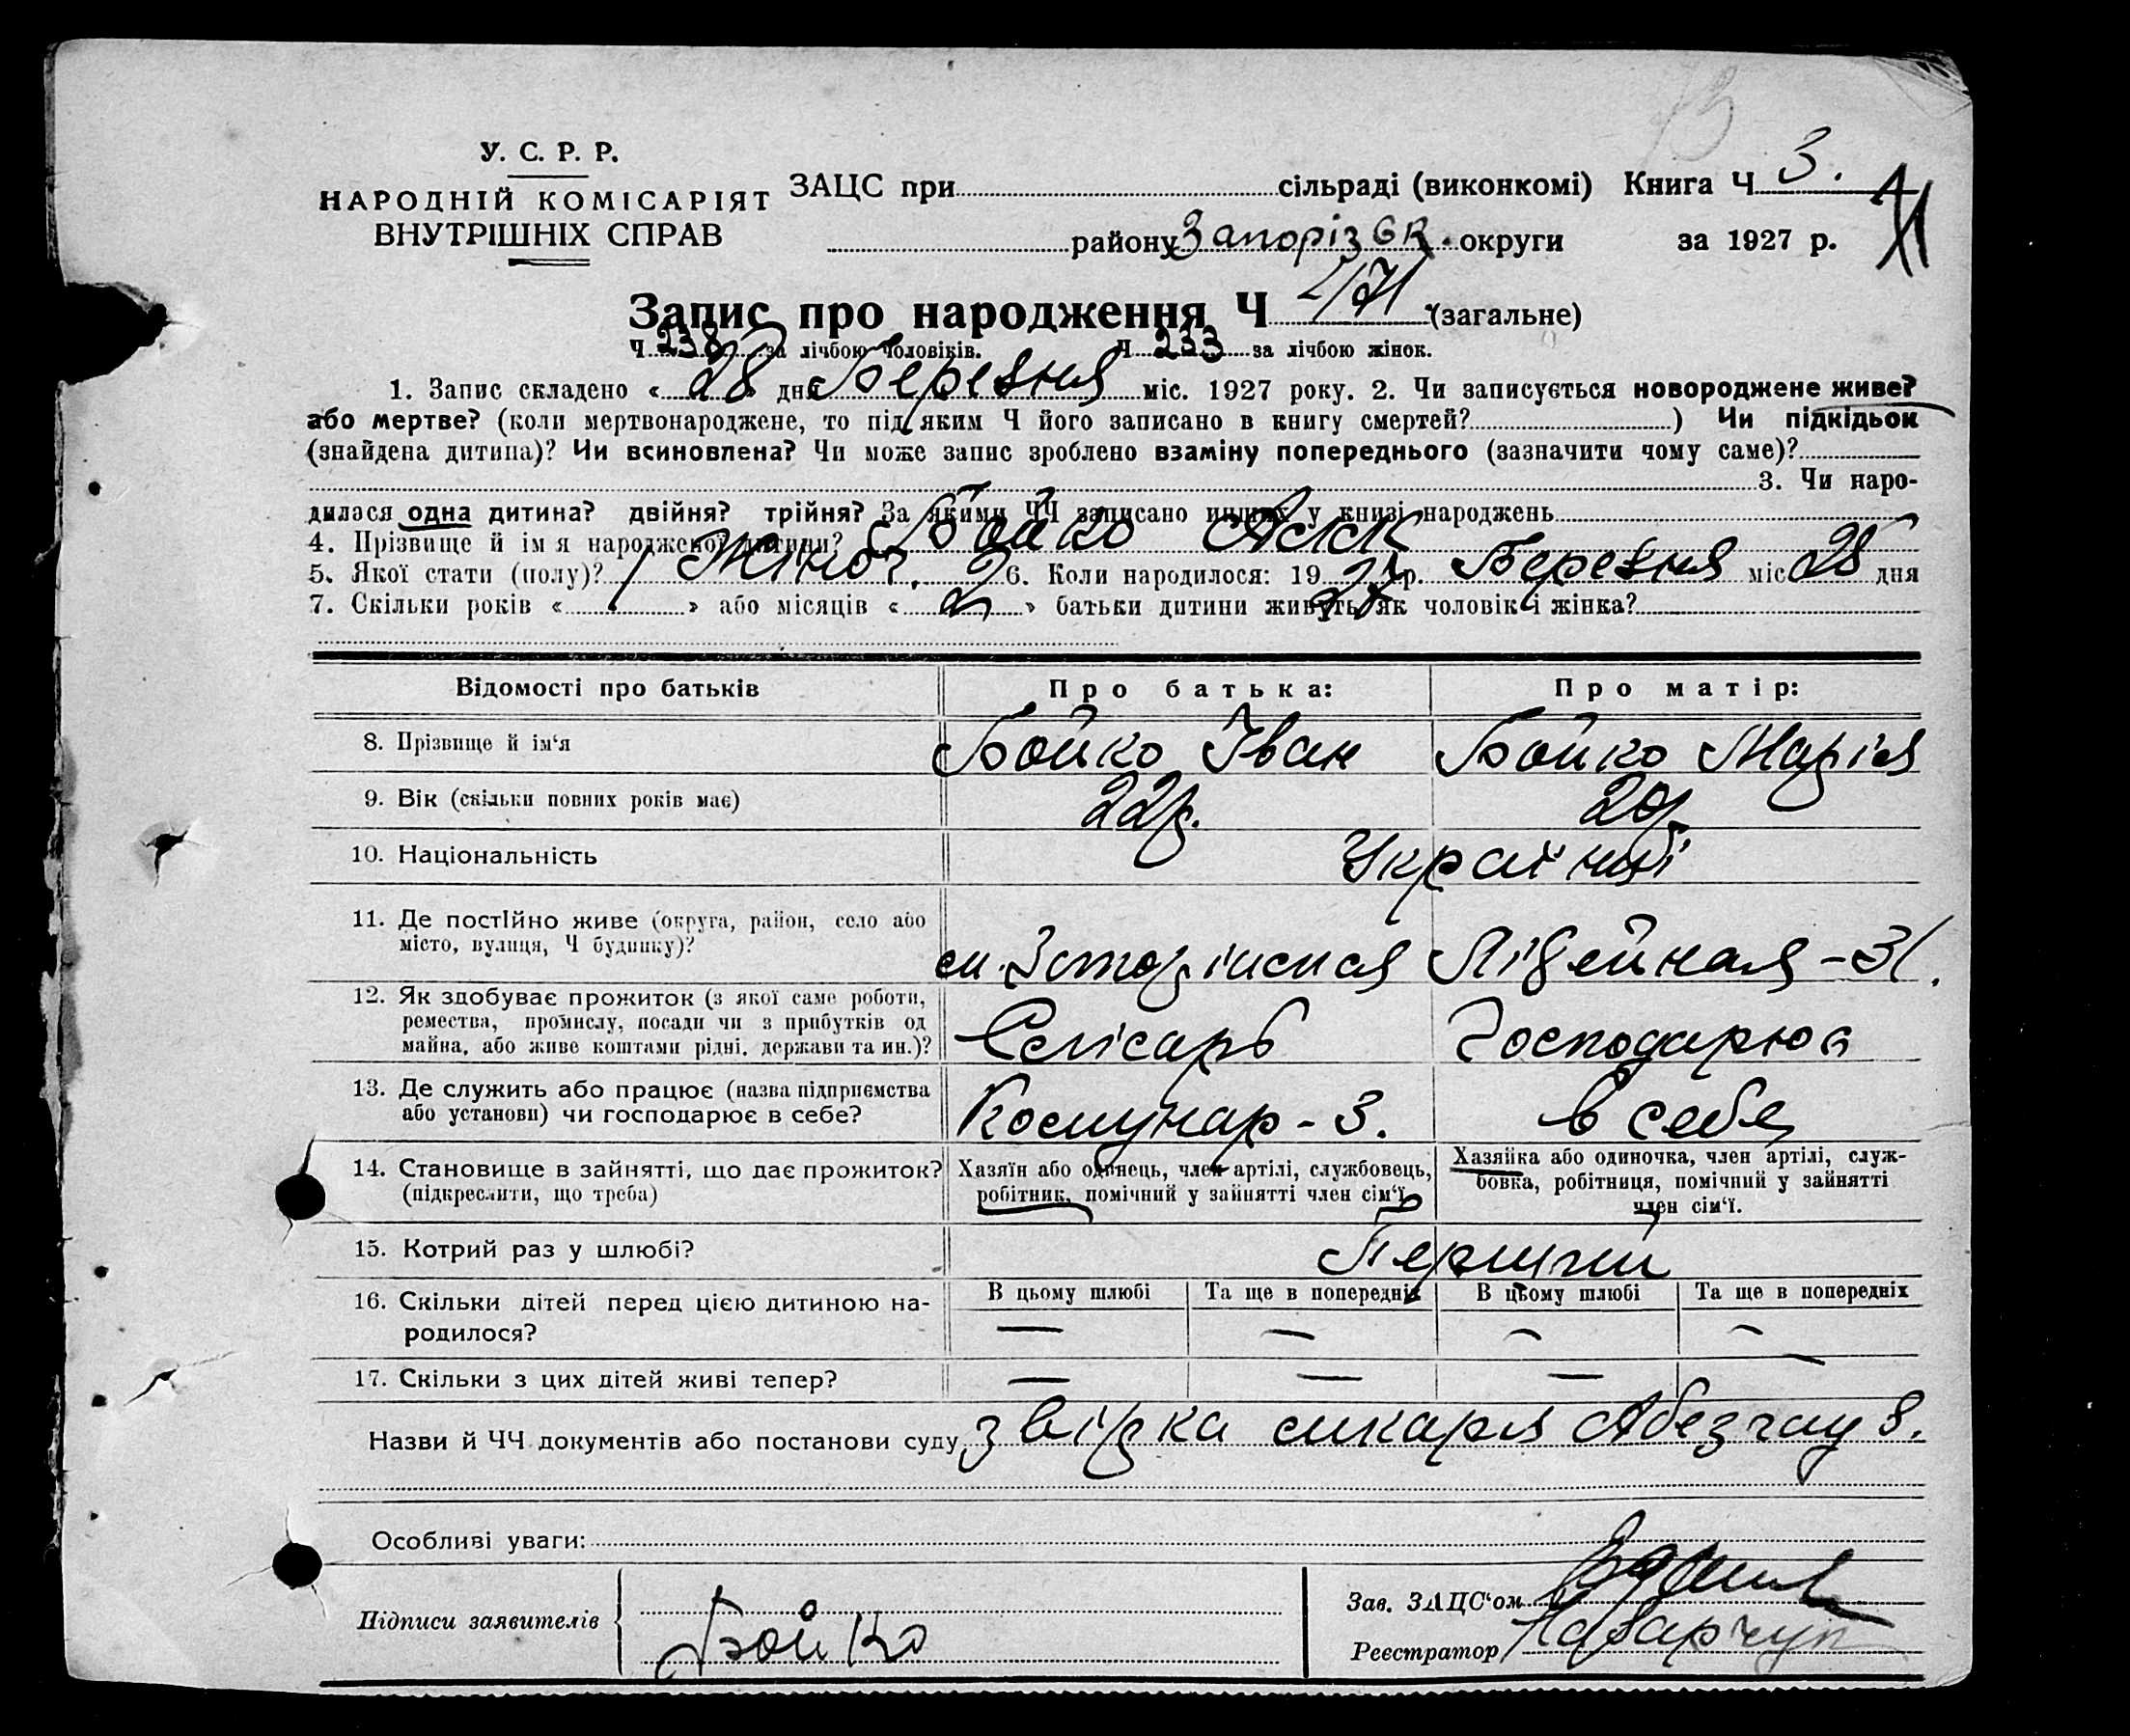 У. С. Р. Р.
НАРОДНІЙ КОМІСАРІЯТ
ВНУТРІШНІХ СПРАВ
ЗАЦС при сільраді (виконкомі) Книга Ч 3.
району Запорізьк. округи за 1927 р.
Запис про народження Ч 471 (загальне)
Ч 238 за лічбою чоловіків. Ч 233 за лічбою жінок.
1. Запис складено « 28 » дня Березня міс. 1927 року. 2. Чи записується новороджене живе?
або мертве? (коли мертвонароджене, то під яким Ч його записано в книгу смертей? ) Чи підкідьок
(знайдена дитина)? Чи всиновлена? Чи може запис зроблено взаміну попереднього (зазначити чому саме)?
3. Чи наро-
дилася одна дитина? двійня? трійня? За якими ЧЧ записано инших у книзі народжень
4. Прізвище й ім я народженої дитини? Бойко
5. Якої стати (полу)? Жіноч. 6. Коли народилося: 19 27 р. Березня міс 28 дня
7. Скільки років « 1 » або місяців « 2 » батьки дитини живуть як чоловік і жінка?
Відомості про батьків Про батька: Про матір:
8. Прізвище й ім‘я Бойко Іван Бойко Марія
9. Вік (скільки повних років має) 22р. 20р.
10. Національність Українці
11. Де постійно живе (округа, район, село або
місто, вулиця, Ч будинку)? Лівейная - 31.
12. Як здобуває прожиток (з якої саме роботи,
ремества, промислу, посади чи з прибутків од
майна, або живе коштами рідні, держави та ин.)? Слісарь Господарює
13. Де служить або працює (назва підприємства
або установи) чи господарює в себе? Комунар - 3. в себе
14. Становище в зайнятті, що дає прожиток?
(підкреслити, що треба)
Хазяїн або одинець, член артілі, службовець,
робітник, помічний у зайнятті член сім‘ї
Хазяйка або одиночка, член артілі, служ-
бовка, робітниця, помічний у зайнятті
член сім‘ї.
15. Котрий раз у шлюбі? Перший
16. Скільки дітей перед цією дитиною на-
родилося?
В цьому шлюбі Та ще в попередніх В цьому шлюбі Та ще в попередніх
— — — —
17. Скільки з цих дітей живі тепер? — — — —
Назви й ЧЧ документів або постанови суду
Особливі уваги:
Підписи заявителів Бойко
Зав. ЗАЦС‘ом
Реєстратор Назарчук